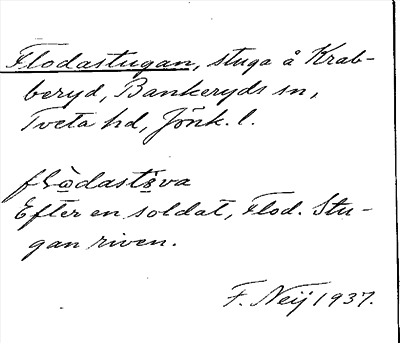 Flodastugan, stuga å Krab-
beryd, Bankeryds sn,
Tveta hd, Jönk. l.
flὼdastɵva
Efter en soldat, Flod. Stu-
gan riven.
F. Neij 1937.